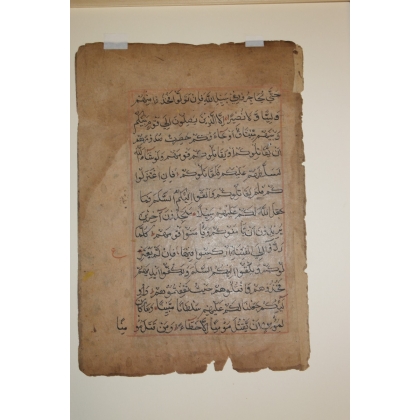 حتى يهاجروا في سبيل الله فان تولوا منهم
وليا ولا نصيرا الا الذين يصلون الى قوم بينكم
وبينهم ميثاق او جاءوكم حصرت صدورهم
ان يقاتلوكم او يقاتلوا قومهم ولو شاء الله
لسلطهم عليكم فلقاتلوكم فان اعتزلو
كم فلم يقاتلوكم والقوا اليكم السلم فما
جعل الله لكم عليهم سبيلا ستجدون آخرين
يريدون ان يامنوكم ويامنوا قومهم كلما
ردوا الى الفتنة اركسوا فيها فان لم يعتزلو
كم ويلقوا اليكم السلم ويكفوا ايديهم
فخذوهم واقتلوهم حيث ثقفتموهم واو
لئكم جعلنا لكم عليهم سلطانا مبينا وما كان
لمؤمن ان يقتل مؤمنا الا خطاء ومن قتل مؤ منا